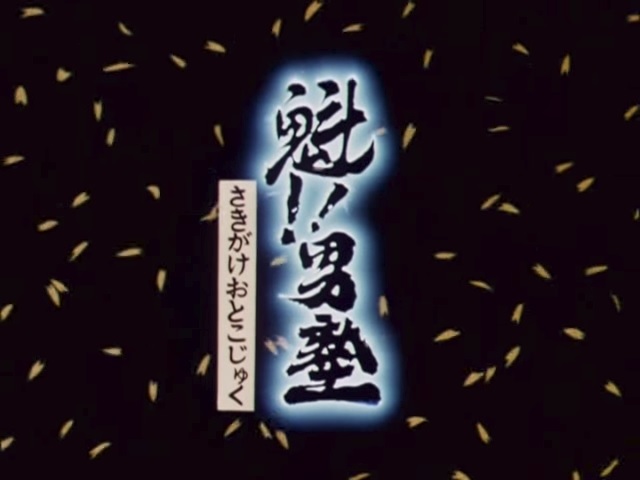 魁!!男塾
さきがけおとこじゅく